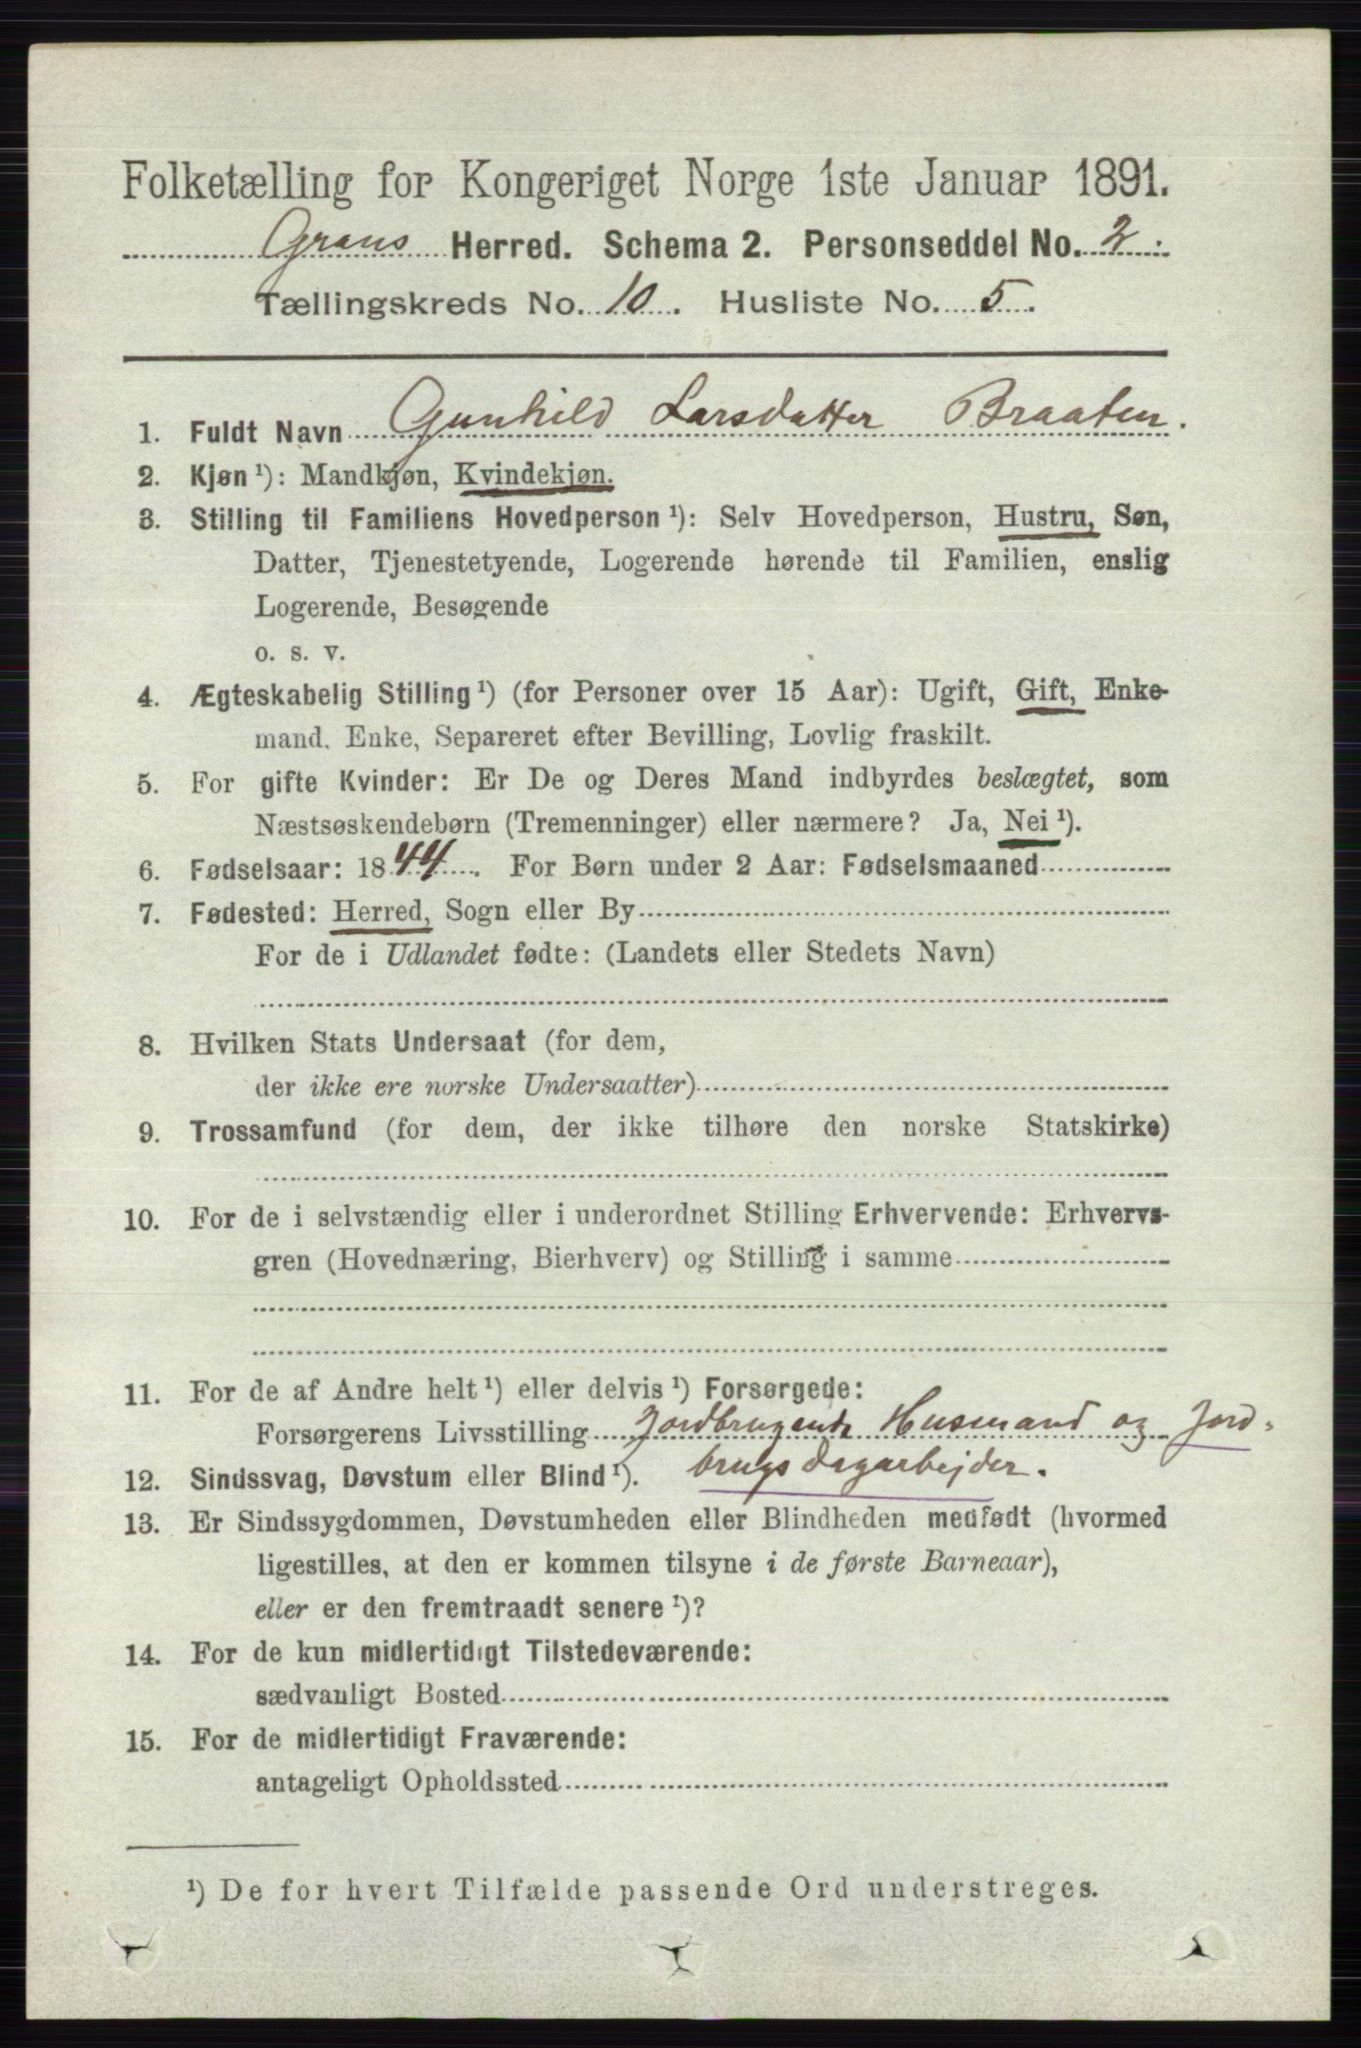 Folketælling for Kongeriget Norge 1ste Januar 1891.
Grans Herred. Schema 2. Personseddel No. 2.
Tællingskreds No. 10. Husliste No. 5.
1. Fuldt Navn Gunhild Larsdatter Braaten.
2. Kjøn ¹): Mandkjøn, Kvindekjøn.
3. Stilling til Familiens Hovedperson ¹): Selv Hovedperson, Hustru, Søn,
Datter, Tjenestetyende, Logerende hørende til Familien, enslig
Logerende, Besøgende
o. s. v.
4. Ægteskabelig Stilling ¹) (for Personer over 15 Aar): Ugift, Gift, Enke-
mand, Enke, Separeret efter Bevilling, Lovlig fraskilt.
5. For gifte Kvinder: Er De og Deres Mand indbyrdes beslægtet, som
Næstsøskendebørn (Tremenninger) eller nærmere? Ja, Nei ¹).
6. Fødselsaar: 1844. For Børn under 2 Aar: Fødselsmaaned
7. Fødested: Herred, Sogn eller By
For de i Udlandet fødte: (Landets eller Stedets Navn)
8. Hvilken Stats Undersaat (for dem,
der ikke ere norske Undersaatter)
9. Trossamfund (for dem, der ikke tilhøre den norske Statskirke)
10. For de i selvstændig eller i underordnet Stilling Erhvervende: Erhvervs-
gren (Hovednæring, Bierhverv) og Stilling i samme
11. For de af Andre helt ¹) eller delvis ¹) Forsørgede:
Forsørgerens Livsstilling Jordbrugende Husmand og Jord-
brugsdagarbejder.
12. Sindssvag, Døvstum eller Blind ¹).
13. Er Sindssygdommen, Døvstumheden eller Blindheden medfødt (hvormed
ligestilles, at den er kommen tilsyne i de første Barneaar),
eller er den fremtraadt senere ¹)?
14. For de kun midlertidigt Tilstedeværende:
sædvanligt Bosted
15. For de midlertidigt Fraværende:
antageligt Opholdssted
¹) De for hvert Tilfælde passende Ord understreges.